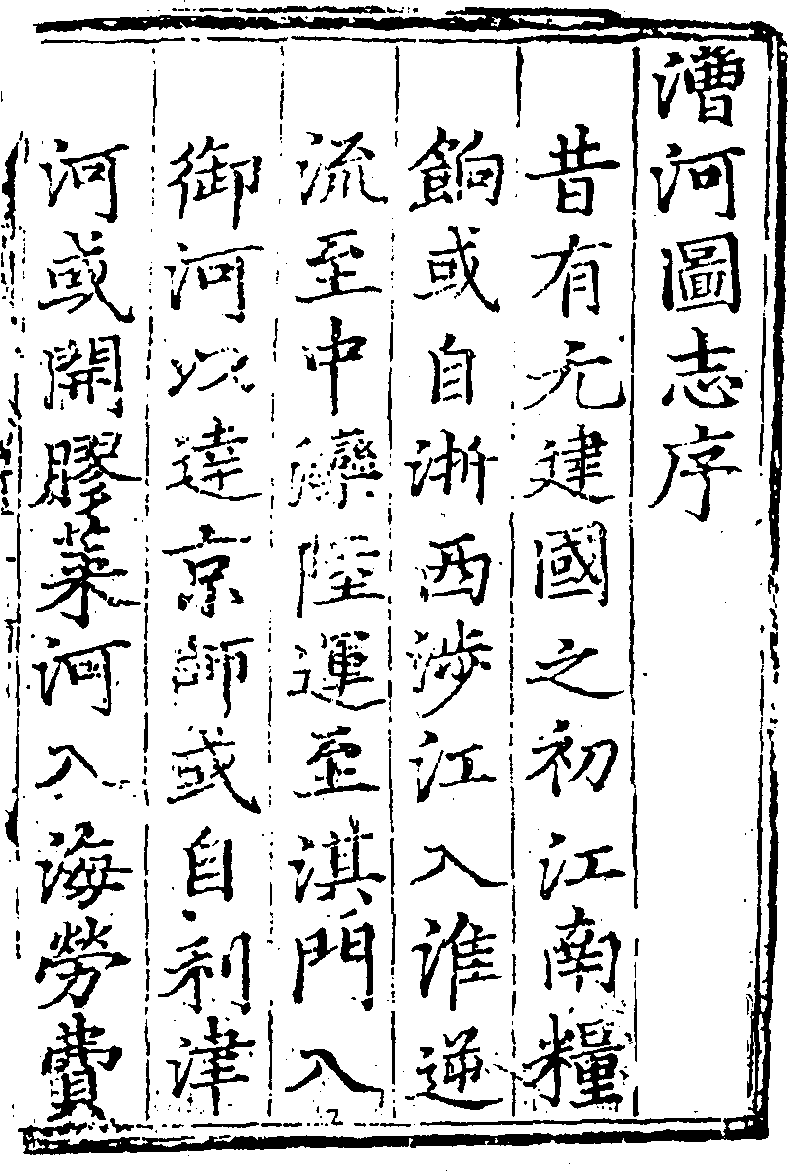 漕河圖志序
昔有元建國之初江南糧
餉或自浙西涉江入淮逆
流至中灤陸運至淇門入
御河以達京師或自利津
河或開膠萊河入海勞費